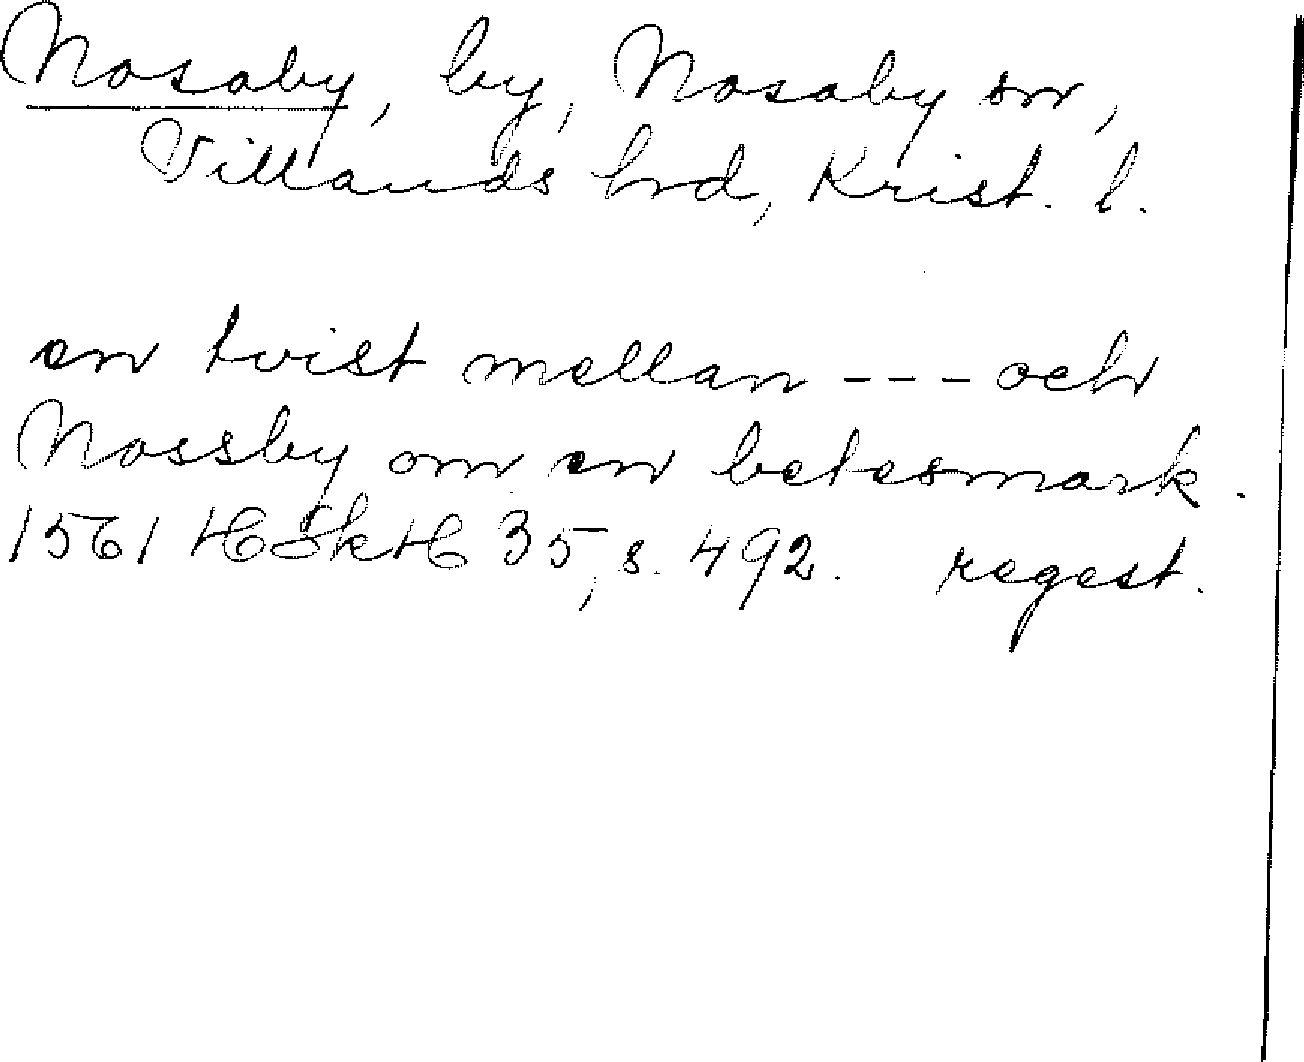 Nosaby, by, Nosaby sn,
Villands hrd, Krist. l.
en tvist mellan --- och
Nossby om en betesmark.
1561 HSkH 35, s. 492. regest.